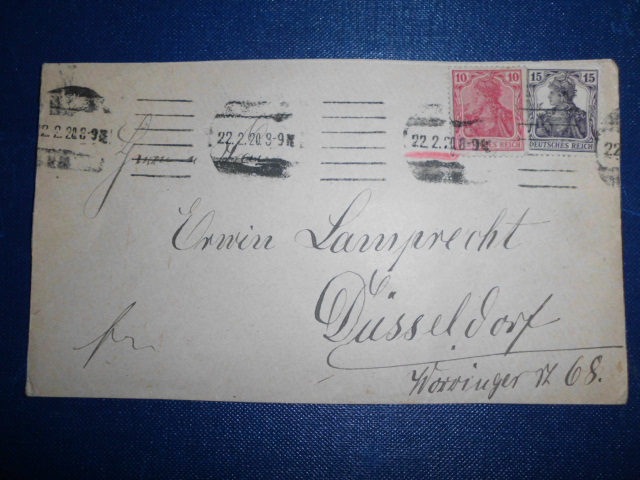 10 10 15 15
DEUTSCHES REICH
22.2.20.8-9N 22.2.20.8-9N 22.2.20.8-9N
Erwin Lamprecht
Düsseldorf
fr.
Worringer St 68.